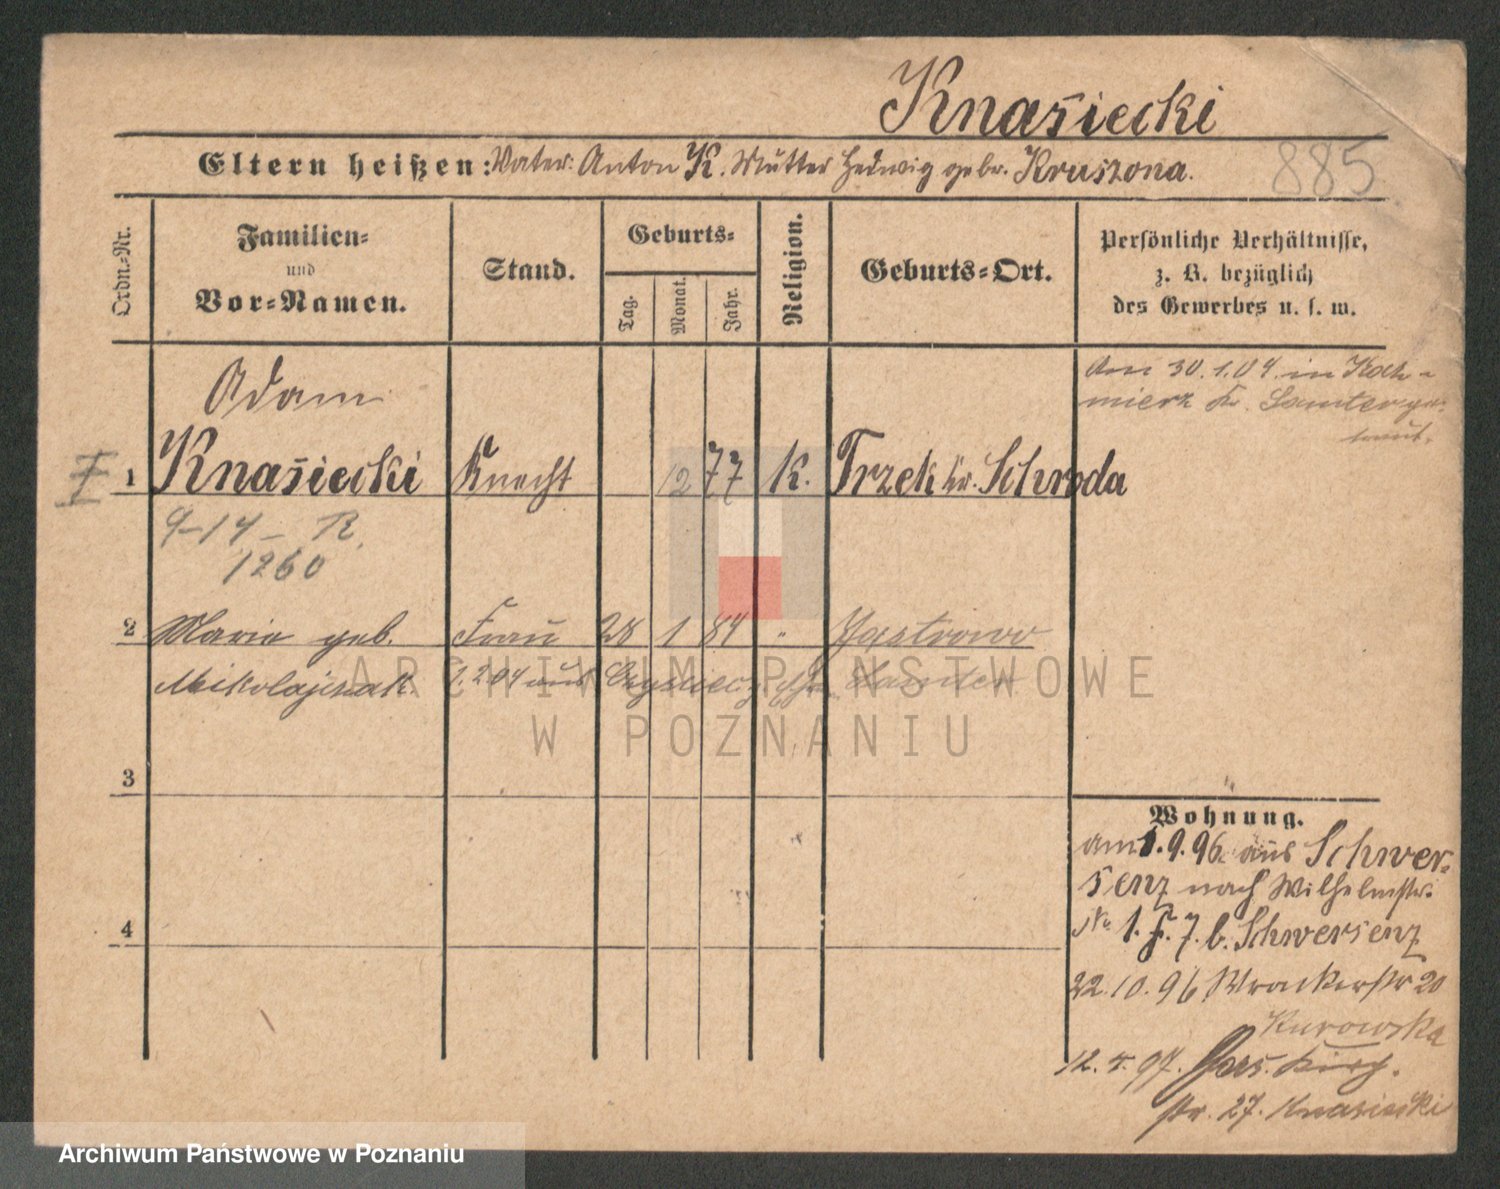 Knasiecki
Eltern heißen: Vater: Anton K. Mutter Hedwig gebr. Kruszona.
885
Ordn.-Nr.
Familien-
und
Vor-Namen.
Stand.
Geburts-
Tag.
Monat.
Jahr.
Religion.
Geburts-Ort.
Persönliche Verhältnisse,
z. B. bezüglich
des Gewerbes u. s. w.
Am 30.1.04. in
Kr. Samter
Adam
1 Knasiecki Knecht 12 77 K. Trzek Kr. Schroda
9-14- R.
1260
2 Maria geb. Frau 28 1 84 " Jastrowo
Mikolajczak. 1.2 04 aus Samter
3
Wohnung.
am 1.9.96. aus Schwer-
senz nach Wilhelmstr.
No 1. b. Schwersenz
4
22.10.96 Wronkerstr 20
Kurowska
12.4.97.
str. 27. Knasiecki
ARCHIWUM PAŃSTWOWE
W POZNANIU
Archiwum Państwowe w Poznaniu